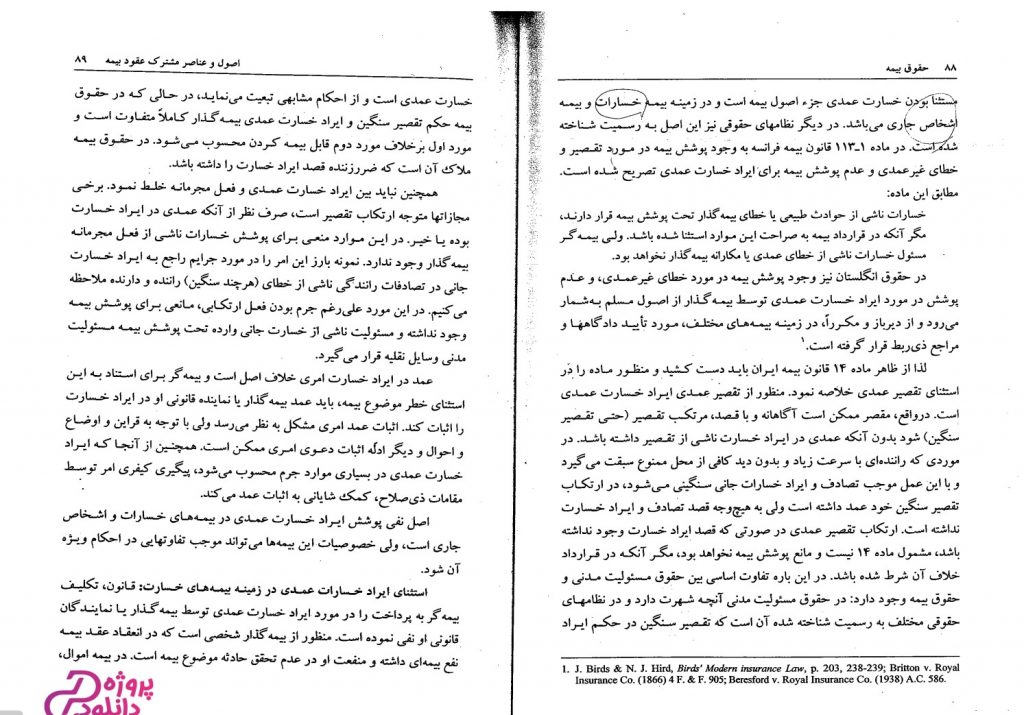 ۸۸ حقوق بیمه
مستثنا بودن خسارت عمدی جزء اصول بیمه است و در زمینه بیمه خسارات و بیمه
اشخاص جاری می‌باشد. در دیگر نظامهای حقوقی نیز این اصل به رسمیت شناخته
شده است. در ماده ۱ـ۱۱۳ قانون بیمه فرانسه به وجود پوشش بیمه در مورد تقصیر و
خطای غیرعمدی و عدم پوشش بیمه برای ایراد خسارت عمدی تصریح شده است.
مطابق این ماده:
خسارات ناشی از حوادث طبیعی یا خطای بیمه‌گذار تحت پوشش بیمه قرار دارند،
مگر آنکه در قرارداد بیمه به صراحت این موارد استثنا شده باشد. ولی بیمه‌گر
مسئول خسارات ناشی از خطای عمدی یا مکارانه بیمه‌گذار نخواهد بود.
در حقوق انگلستان نیز وجود پوشش بیمه در مورد خطای غیرعمدی، و عدم
پوشش در مورد ایراد خسارت عمدی توسط بیمه‌گذار از اصول مسلم به‌شمار
می‌رود و از دیرباز و مکرراً، در زمینه بیمه‌های مختلف، مورد تأیید دادگاهها و
مراجع ذی‌ربط قرار گرفته است.۱
لذا از ظاهر ماده ۱۴ قانون بیمه ایران باید دست کشید و منظور ماده را در
استثنای تقصیر عمدی خلاصه نمود. منظور از تقصیر عمدی ایراد خسارت عمدی
است. درواقع، مقصر ممکن است آگاهانه و با قصد، مرتکب تقصیر (حتی تقصیر
سنگین) شود بدون آنکه عمدی در ایراد خسارت ناشی از تقصیر داشته باشد. در
موردی که راننده‌ای با سرعت زیاد و بدون دید کافی از محل ممنوع سبقت می‌گیرد
و با این عمل موجب تصادف و ایراد خسارات جانی سنگینی می‌شود، در ارتکاب
تقصیر سنگین خود عمد داشته است ولی به هیچ‌وجه قصد تصادف و ایراد خسارت
نداشته است. ارتکاب تقصیر عمدی در صورتی که قصد ایراد خسارت وجود نداشته
باشد، مشمول ماده ۱۴ نیست و مانع پوشش بیمه نخواهد بود، مگر آنکه در قرارداد
خلاف آن شرط شده باشد. در این باره تفاوت اساسی بین حقوق مسئولیت مدنی و
حقوق بیمه وجود دارد: در حقوق مسئولیت مدنی آنچه شهرت دارد و در نظامهای
حقوقی مختلف به رسمیت شناخته شده آن است که تقصیر سنگین در حکم ایراد
1. J. Birds & N. J. Hird, Birds' Modern insurance Law, p. 203, 238-239; Britton v. Royal
Insurance Co. (1866) 4 F. & F. 905; Beresford v. Royal Insurance Co. (1938) A.C. 586.
اصول و عناصر مشترک عقود بیمه ۸۹
خسارت عمدی است و از احکام مشابهی تبعیت می‌نماید، در حالی که در حقوق
بیمه حکم تقصیر سنگین و ایراد خسارت عمدی بیمه‌گذار کاملاً متفاوت است و
مورد اول برخلاف مورد دوم قابل بیمه کردن محسوب می‌شود. در حقوق بیمه
ملاک آن است که ضررزننده قصد ایراد خسارت را داشته باشد.
همچنین نباید بین ایراد خسارت عمدی و فعل مجرمانه خلط نمود. برخی
مجازاتها متوجه ارتکاب تقصیر است، صرف نظر از آنکه عمدی در ایراد خسارت
بوده یا خیر. در این موارد منعی برای پوشش خسارات ناشی از فعل مجرمانه
بیمه‌گذار وجود ندارد. نمونه بارز این امر را در مورد جرایم راجع به ایراد خسارت
جانی در تصادفات رانندگی ناشی از خطای (هرچند سنگین) راننده و دارنده ملاحظه
می‌کنیم. در این مورد علی‌رغم جرم بودن فعل ارتکابی، مانعی برای پوشش بیمه
وجود نداشته و مسئولیت ناشی از خسارت جانی وارده تحت پوشش بیمه مسئولیت
مدنی وسایل نقلیه قرار می‌گیرد.
عمد در ایراد خسارت امری خلاف اصل است و بیمه‌گر برای استناد به این
استثنای خطر موضوع بیمه، باید عمد بیمه‌گذار یا نماینده قانونی او در ایراد خسارت
را اثبات کند. اثبات عمد امری مشکل به نظر می‌رسد ولی با توجه به قراین و اوضاع
و احوال و دیگر ادلّه اثبات دعوی امری ممکن است. همچنین از آنجا که ایراد
خسارت عمدی در بسیاری موارد جرم محسوب می‌شود، پیگیری کیفری امر توسط
مقامات ذی‌صلاح، کمک شایانی به اثبات عمد می‌کند.
اصل نفی پوشش ایراد خسارت عمدی در بیمه‌های خسارات و اشخاص
جاری است، ولی خصوصیات این بیمه‌ها می‌تواند موجب تفاوتهایی در احکام ویژه
آن شود.
استثنای ایراد خسارات عمدی در زمینه بیمه‌های خسارت: قانون، تکلیف
بیمه‌گر به پرداخت را در مورد ایراد خسارت عمدی توسط بیمه‌گذار یا نمایندگان
قانونی او نفی نموده است. منظور از بیمه‌گذار شخصی است که در انعقاد عقد بیمه
نفع بیمه‌ای داشته و منفعت او در عدم تحقق حادثه موضوع بیمه است. در بیمه اموال،
پروژه
دانلود